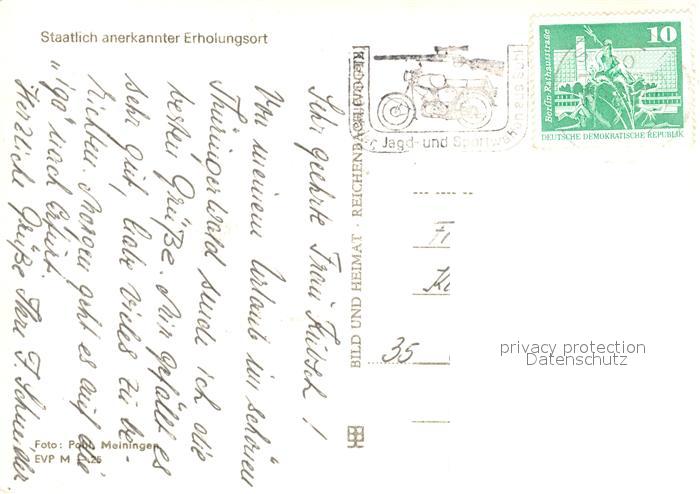 Staatlich anerkannter Erholungsort
Sehr geehrte Frau Kubsch!
Von meinem Urlaub im schönen
Thüringerwald sende ich die
besten Grüße. Mir gefällt es
sehr gut, habe vieles zu be-
sehen. Morgen geht es auf die
"iga" nach Erfurt.
Herzliche Grüße Ihre F. Schneider
Foto: Meiningen
EVP M
BILD UND HEIMAT · REICHENBACH
Jagd- und Sportwaffen aus Suhl
10
Berlin-Rathausstraße
DEUTSCHE DEMOKRATISCHE REPUBLIK
35
privacy protection
Datenschutz